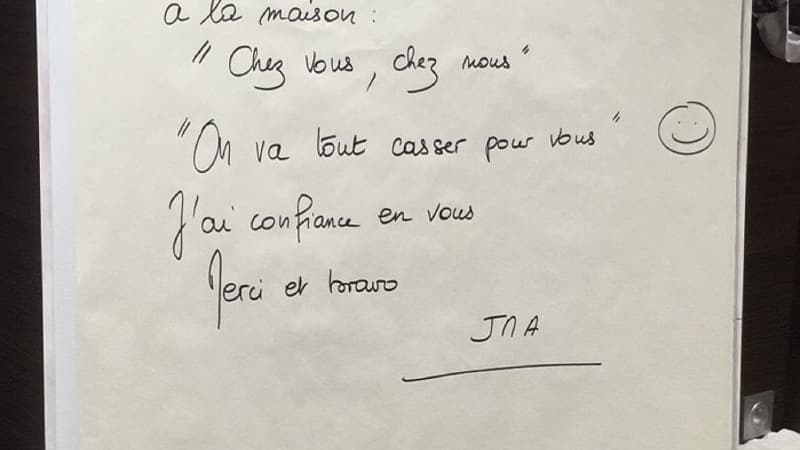 a la maison :
" Chez vous, chez nous "
" On va tout casser pour vous "
J'ai confiance en vous
Merci et bravo
JMA